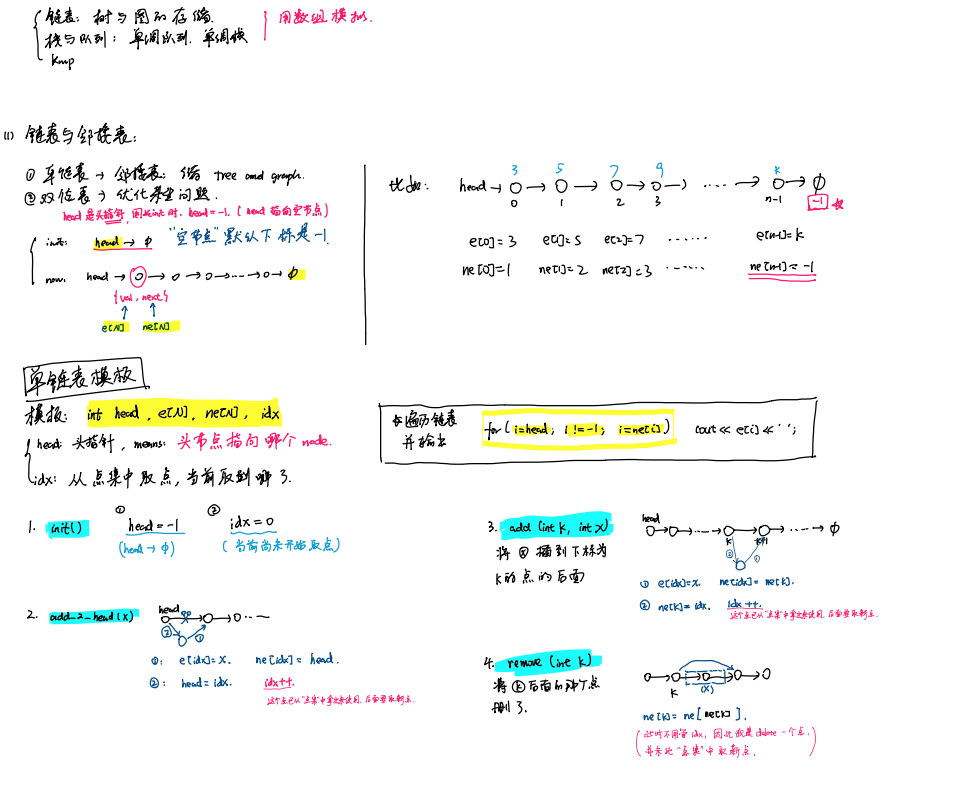 链表：树与图的存储.
栈与队列：单调队列. 单调栈
kmp
用数组模拟.
(1) 链表与邻接表：
① 单链表 → 邻接表：存储 tree and graph.
② 双链表 → 优化某些问题.
head 是头指针, 因此init时, head=-1. ( head 指向空节点)
init: head → ϕ "空节点" 默认下标是 -1.
now. head → O → O → O → ... → O → ϕ
{val, next}
e[N] ne[N]
比如: head → O → O → O → O → ..... → O → ϕ
3 5 7 9 k
0 1 2 3 n-1 -1
e[0]=3 e[1]=5 e[2]=7 ...... e[n-1]=k
ne[0]=1 ne[1]=2 ne[2]=3 ...... ne[n-1]=-1
单链表模板
模板: int head, e[N], ne[N], idx
head: 头指针, means: 头节点指向哪个 node.
idx: 从点集中取点, 当前取到哪了.
遍历链表
并输出
for( i=head; i!=-1; i=ne[i]) cout << e[i] << ' ';
1. init() ① head=-1 ② idx=0
(head → ϕ) (当前尚未开始取点)
2. add_2_head(x) head
② ①
①: e[idx]=x. ne[idx]=head.
②: head=idx. idx++.
这个点已从"点集"中拿出来使用, 后面要取新点.
3. add (int k, int x)
将 ⓧ 插到下标为
k的点的后面
head
k k+1 ϕ
② ①
① e[idx]=x. ne[idx]=ne[k].
② ne[k]=idx. idx++.
这个点已从"点集"中拿出来使用, 后面要取新点.
4. remove (int k)
将 ⓚ 后面的那个点
删了.
k (x)
ne[k]=ne[ne[k]].
(此时不用管 idx, 因此我是 delete 一个点,
并未从"点集"中取新点.)